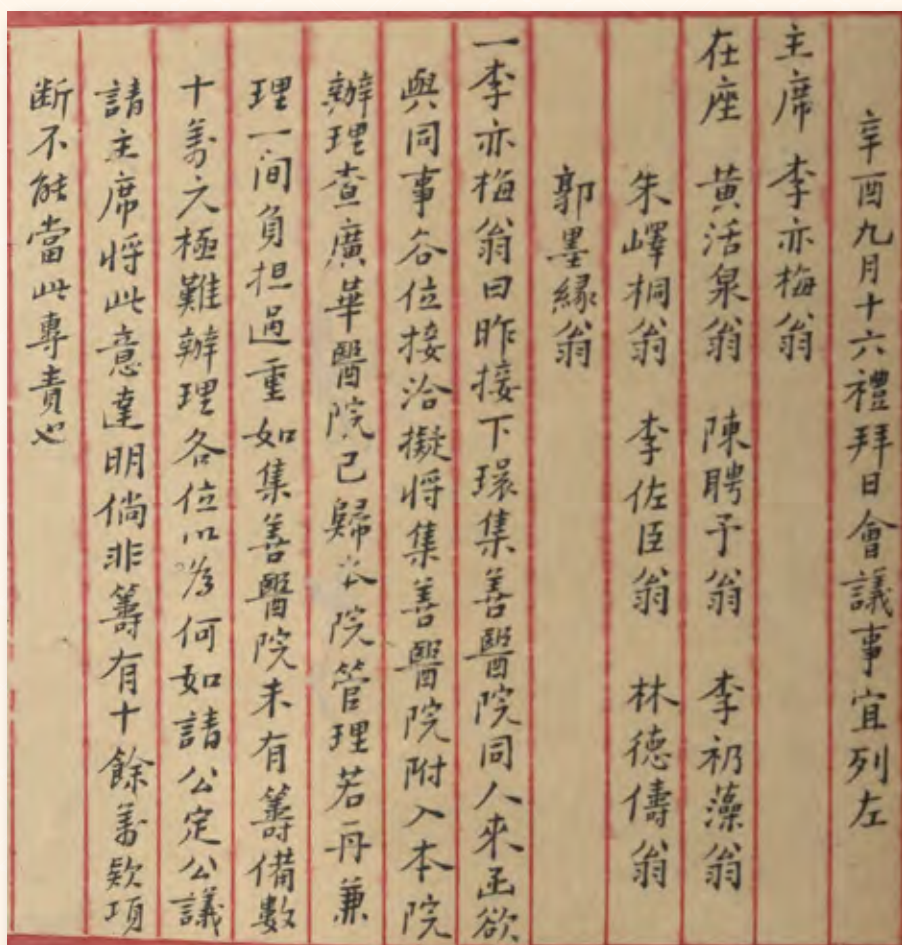 辛酉九月十六禮拜日會議事宜列左
主席 李亦梅翁
在座 黃活泉翁 陳聘予翁 李礽藻翁
朱嶧桐翁 李佐臣翁 林德儔翁
郭墨緣翁
一李亦梅翁曰昨接下環集善醫院同人來函欲
與同事各位接洽擬將集善醫院附入本院
辦理查廣華醫院已歸本院管理若再兼
理一间負担過重如集善醫院未有籌備數
十萬元極難辦理各位以為何如請公定公議
請主席将此意達明倘非籌有十餘萬欵項
断不能當此專責也